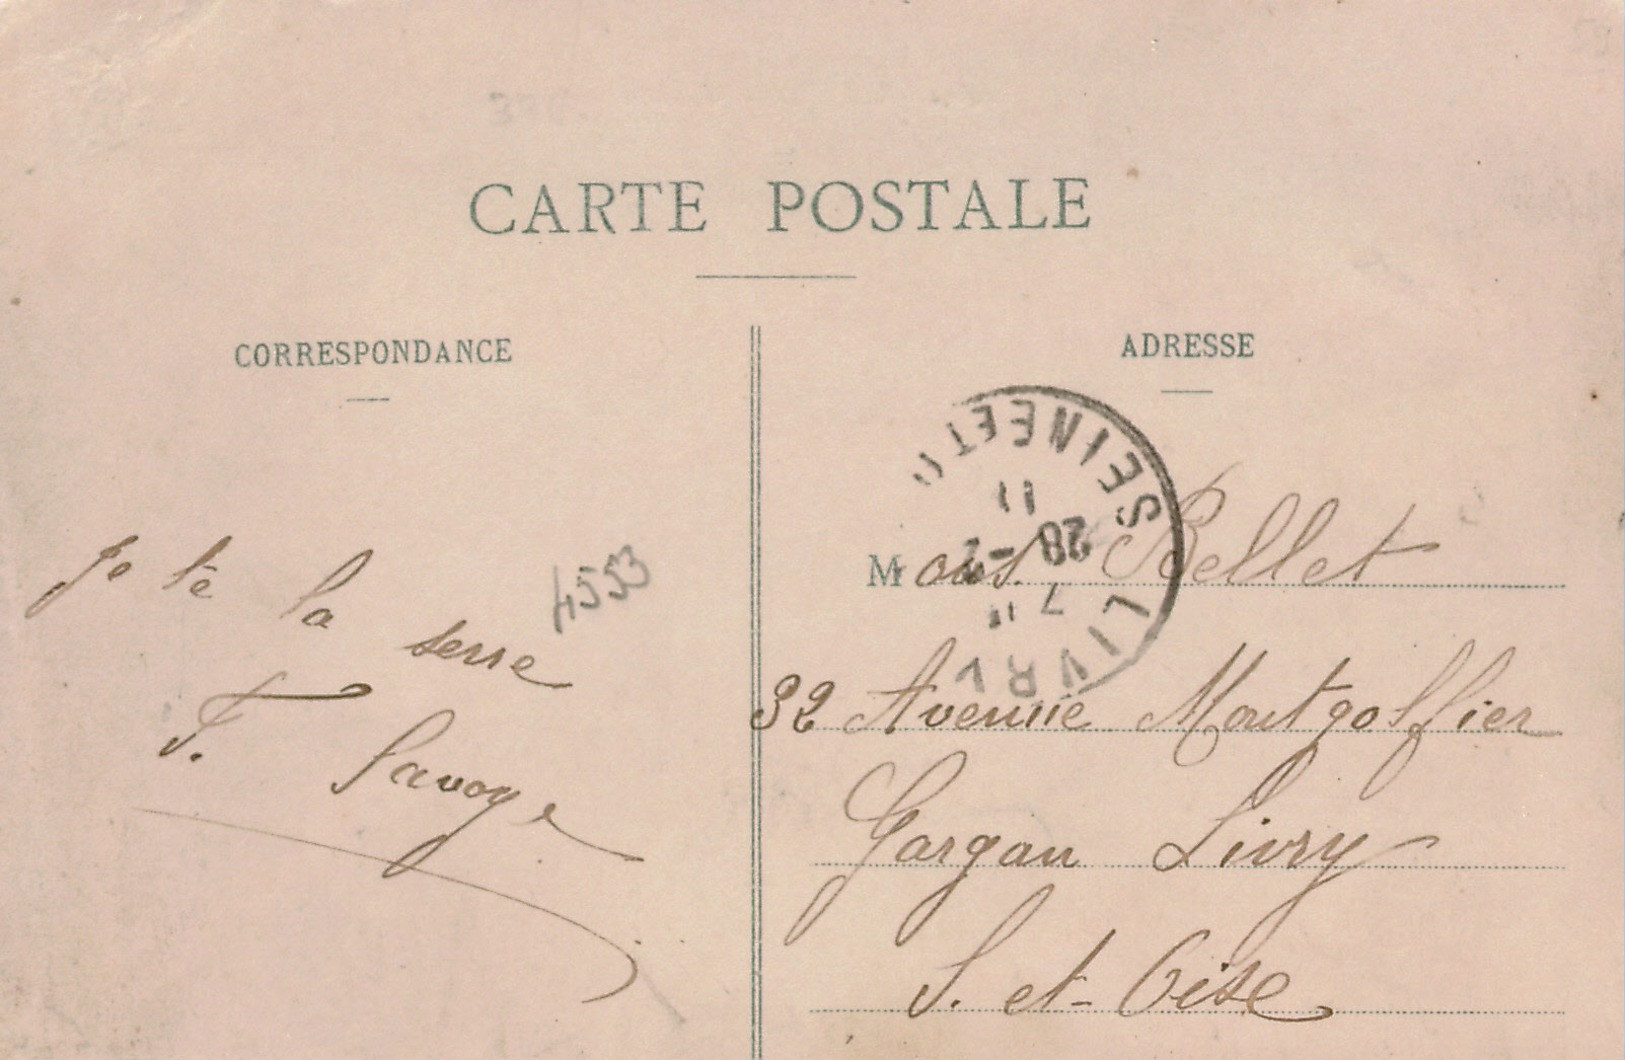 CARTE POSTALE
CORRESPONDANCE
ADRESSE
Je te la serre
F. Savoye
4553
Mons. Bellet
32 Avenue Montgolfier
Gargan Livry
S. et-Oise
LIVRY
SEINE ET
7
28 - 2
11